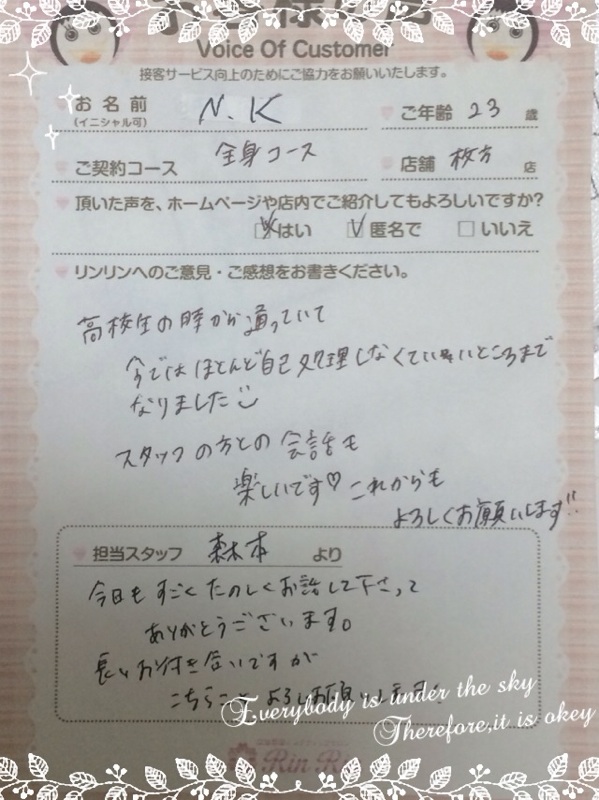 お客様の声
Voice Of Customer
接客サービス向上のためにご協力をお願いいたします。
お名前
(イニシャル可)
N.K
ご年齢 23 歳
ご契約コース 全身コース
店舗 枚方 店
頂いた声を、ホームページや店内でご紹介してもよろしいですか?
はい 匿名で いいえ
リンリンへのご意見・ご感想をお書きください。
高校生の時から通っていて
今ではほとんど自己処理しなくていいところまで
なりました
スタッフの方との会話も
楽しいです♡これからも
よろしくお願いします!!
担当スタッフ 森本 より
今日もすごくたのしくお話して下さって
ありがとうございます。
長いお付き合いですが
こちらこそよろしくお願いします
Everybody is under the sky
Therefore,it is okey
Rin Ri